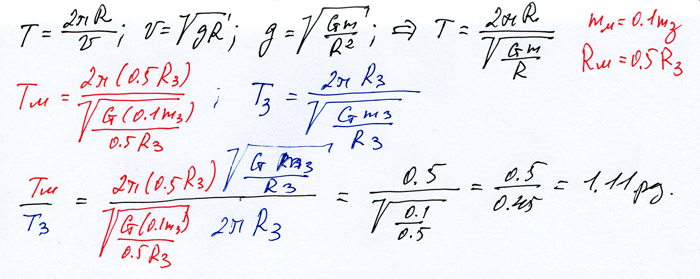 T = 2πR/v; v = √(gR); g = √(Gm/R²); ⇒ T = 2πR/√(Gm/R) mм = 0.1mз
Rм = 0.5Rз
Tм = 2π(0.5Rз)/√(G(0.1mз)/0.5Rз); Tз = 2πRз/√(Gmз/Rз)
Tм/Tз = 2π(0.5Rз)√(Gmз/Rз)/(√(G(0.1mз)/0.5Rз) 2πRз) = 0.5/√(0.1/0.5) = 0.5/0.45 = 1.11 рз.